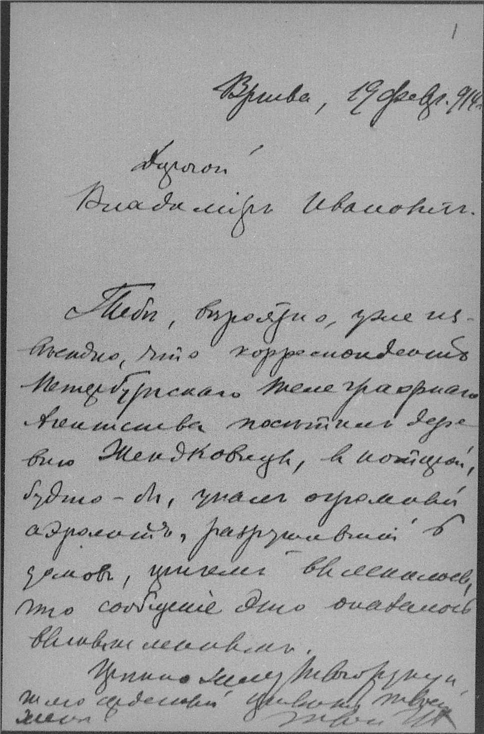 1
19 февр. 914.
Дорогой
Владимiръ Ивановичъ.
Тебѣ, вѣроятно, уже из-
вѣстно, что корреспондентъ
Петербургскаго Телеграфнаго
Агентства посѣтилъ дерев-
ню, въ которой,
будто-бы, упалъ огромный
аэролитъ, разрушившiй 6
домовъ, причемъ выяснилось,
что сообщенiе это оказалось
вымышленнымъ.
Твой